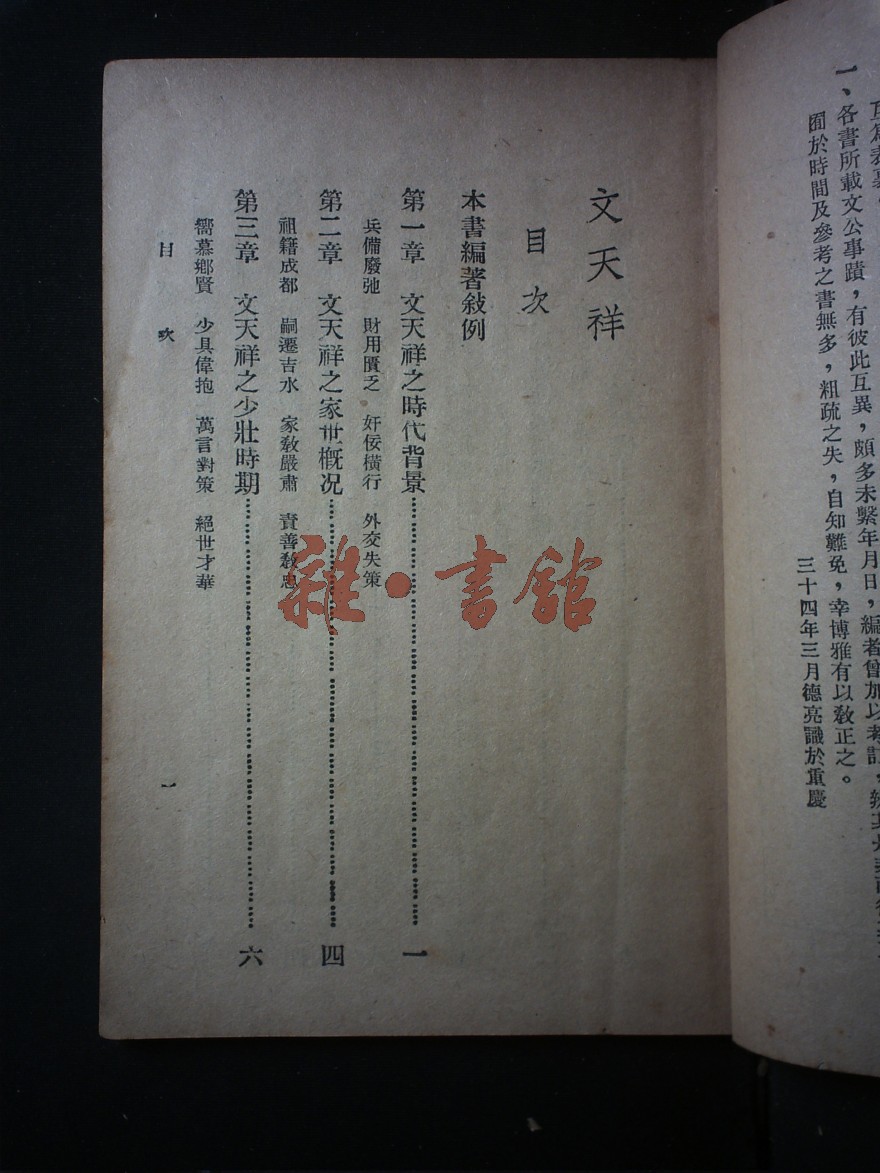 一、各書所載文公事蹟，有彼此互異，頗多未繫年月日，編者曾加以考訂，
囿於時間及參考之書無多，粗疏之失，自知難免，幸博雅有以敎正之。
三十四年三月德亮識於重慶
文天祥
目次
本書編著敍例
第一章　文天祥之時代背景……一
兵備廢弛　財用匱乏　奸佞橫行　外交失策
第二章　文天祥之家世概况……四
祖籍成都　嗣遷吉水　家敎嚴肅　責善敎忠
第三章　文天祥之少壯時期……六
嚮慕鄉賢　少具偉抱　萬言對策　絕世才華
目次
一
雜·書館